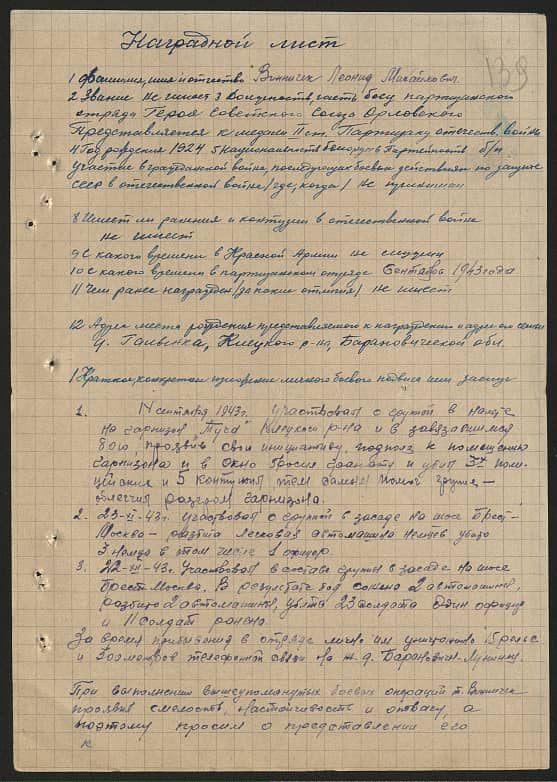 Наградной лист
139
1 Фамилия, имя и отчество Винничек Леонид Михайлович
2 Звание не имеет 3 Должность, часть боец партизанского
отряда Героя Советского Союза Орловского
Представляется к медали II ст. Партизану отечеств. войны
4 Год рождения 1924 5 Национальность белорус 6 Партийность б/п
участие в гражданской войне, последующих боевых действиях по защите
СССР в отечественной войне /где, когда/ не принимал
8 Имеет ли ранения и контузии в отечественной войне
не имеет
9 С какого времени в Красной Армии не служил
10 С какого времени в партизанском отряде Сентября 1943 года
11 Чем ранее награжден /за какие отличия/ не имеет
12 Адрес места рождения представляемого к награждению и адрес его семьи
Клецкого р-на, Барановической обл.
1 Краткое, конкретное изложение личного боевого подвига или заслуг
1. сентября 1943 г. участвовал с группой в налете
на гарнизон "Туса" Клецкого р-на и в завязавшемся
бою, проявив свою инициативу, подполз к помещению
гарнизона и в окно бросил гранату и убил 3х поли-
цейских и 5 контузил тем самым помог группе -
облегчил разгром гарнизона.
2. 43 г. участвовал с группой в засаде на шосе Брест-
Москва - разбита легковая автомашина немцев убито
3 немца в том числе 1 офицер.
3. 43 г. Участвовал в составе группы в засаде на шосе
Брест Москва. В результате боя сожжено 2 автомашины,
разбито 2 автомашины, убита 23 солдата один офицер
и 11 солдат ранено.
За время пребывания в отряде лично им уничтожено 15 рельс
и 300 метров телефонной связи на ж.д. Барановичи-Лунинец.
При выполнении вышеупомянутых боевых операций т. Винничек
проявил смелость, настойчивость и отвагу, а
поэтому просим о представлении его
к